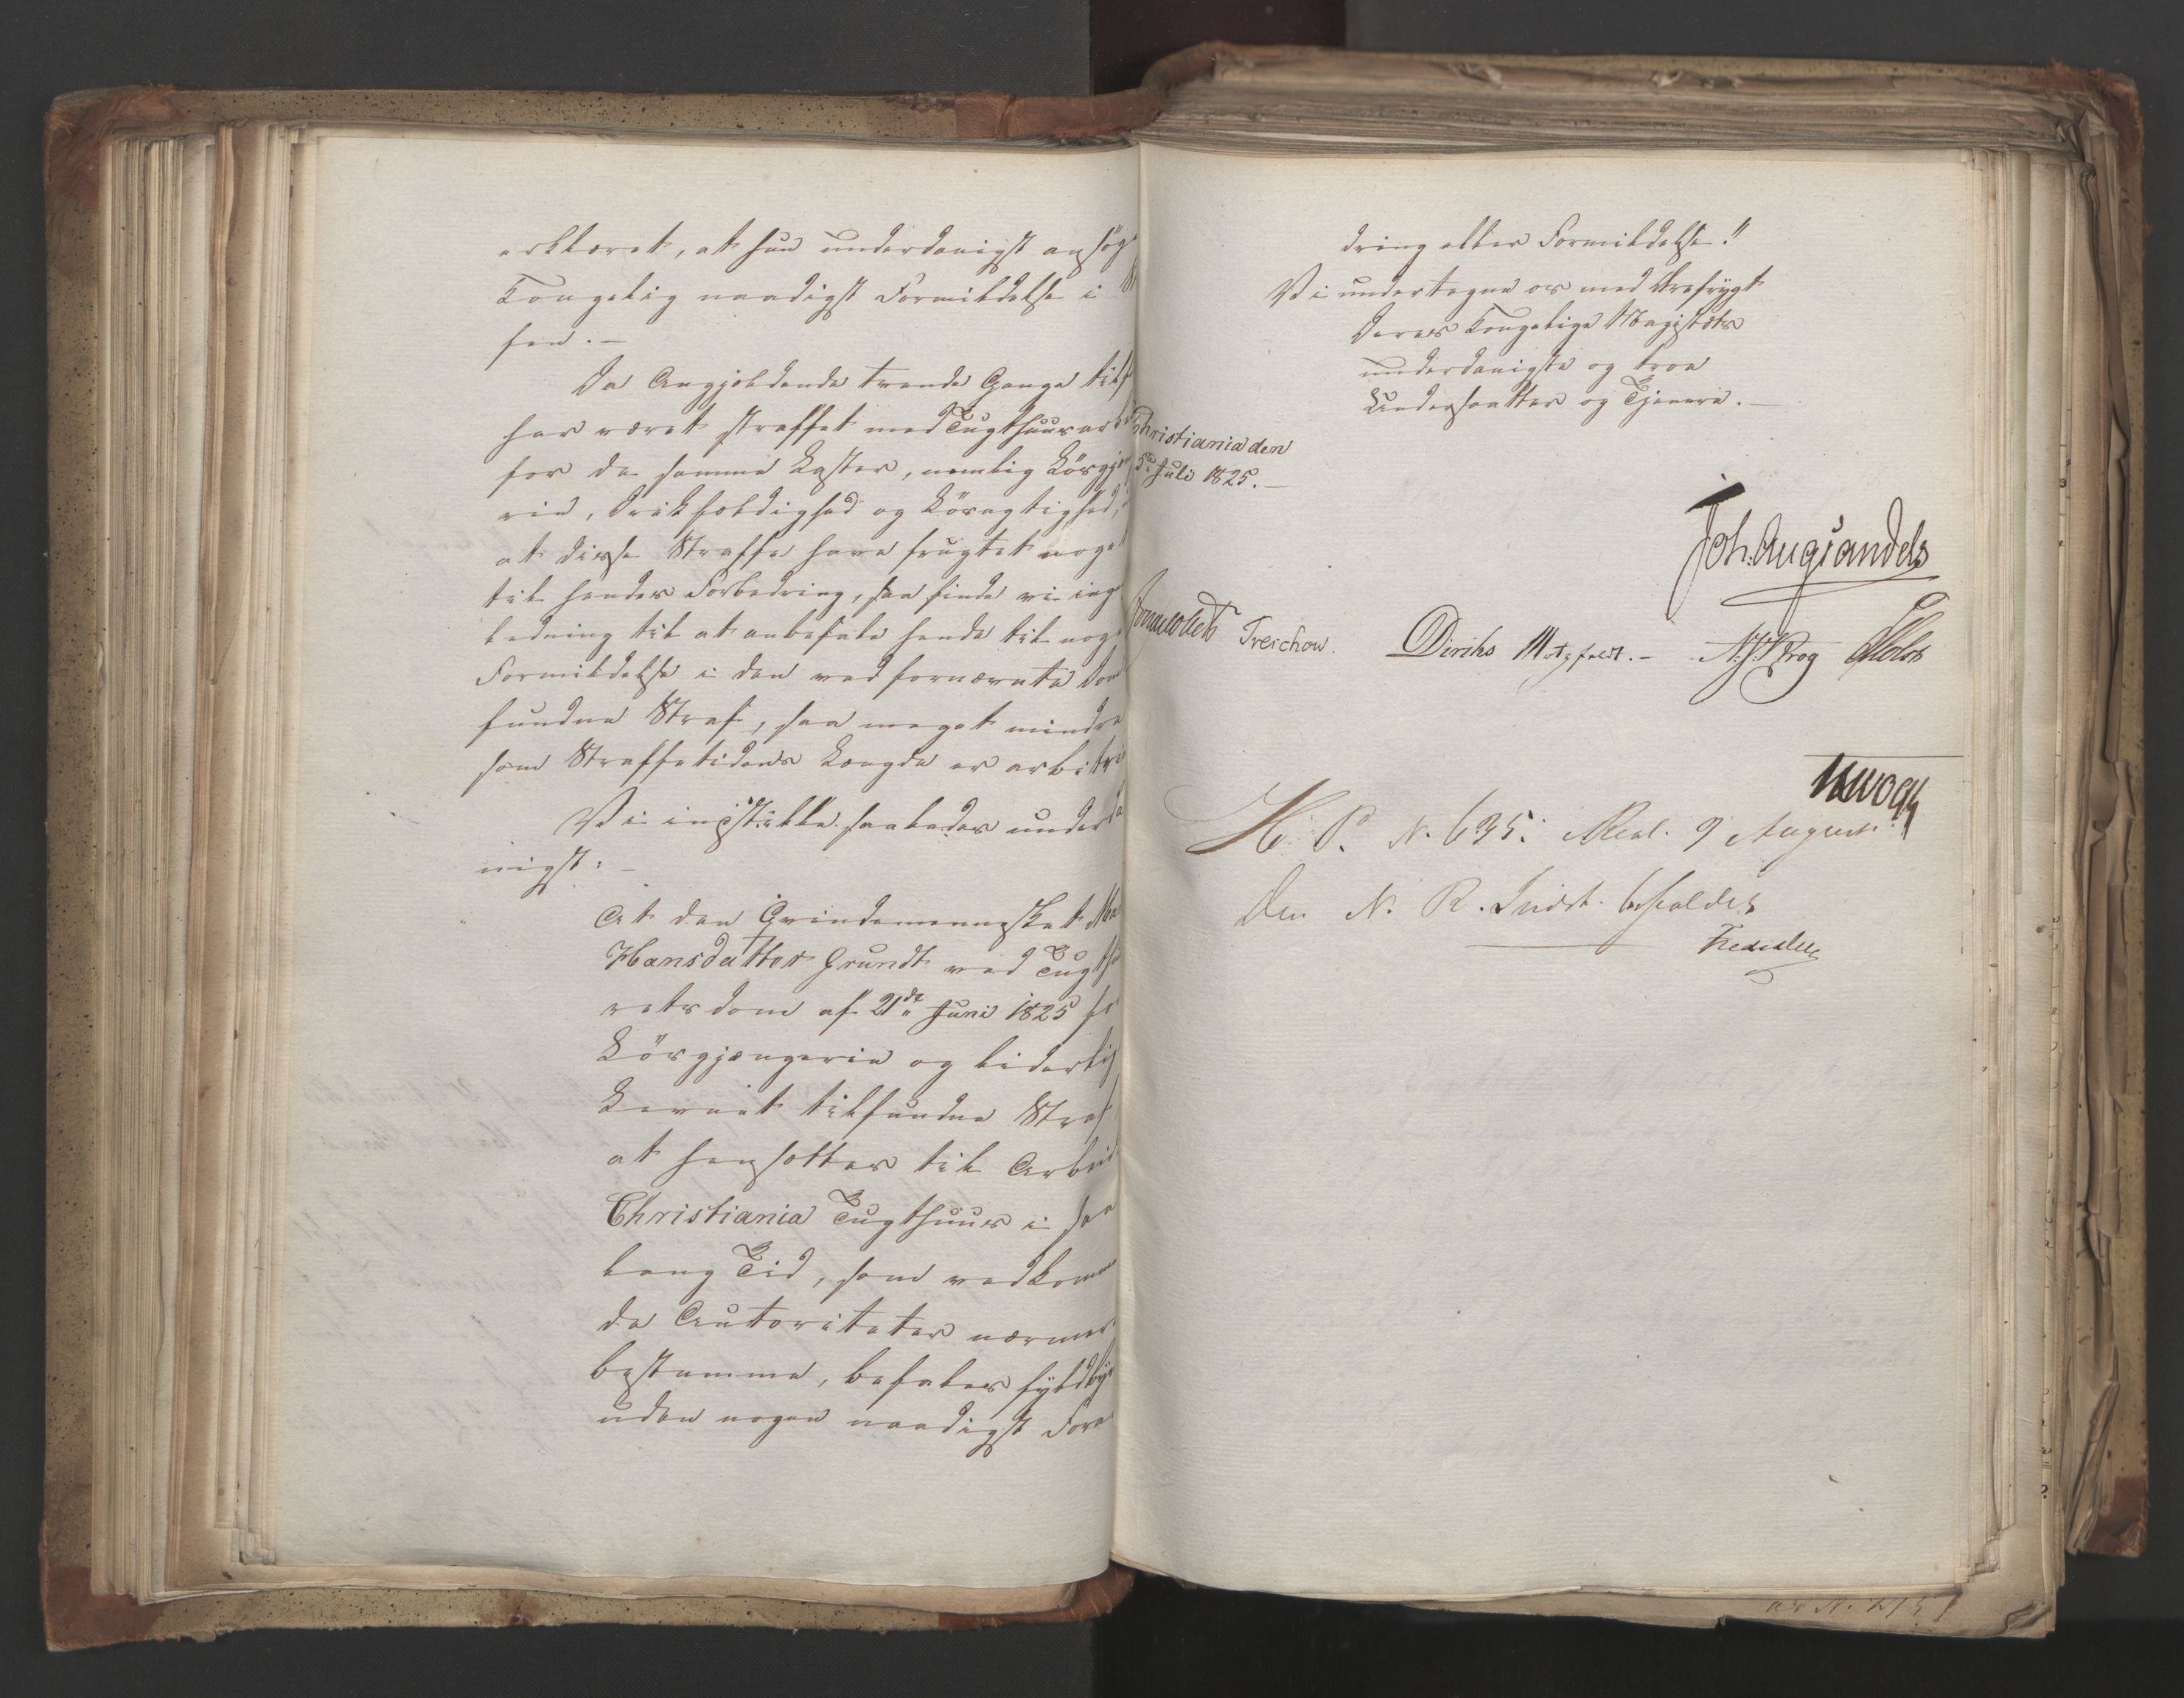 erklæret, at hun underdanigst ansøg
Kongelig naadigst Formildelse i
sen. —
Da Angjeldende trende Gange tilf
har været straffet med Tugthuusarb
for de samme Laster, nemlig Lösgjæn
rie, Drikfældighed og Löragtighed,
at disse Straffe have frugtet noget
til hendes Forbedring, saa finde vi ing
ledning til at anbefale hende til nog
Formildelse i den ved fornævnte Dom
fundne Straf, saa meget mindre
som Straffetidens Længde er arbitri
Vi indstille saaledes underda
nigst: —
At den Qvindemennesket
Hansdatter Grundt ved Tugth
rets dom af 21de Juni 1825 fo
Lösgjængerie og liderlig
Levnet tilfundne Straf
at hensættes til Arbeid
Christiania Tugthuus i saa
lang Tid, som vedkommen
de Autoriteter nærmere
bestemme, befales fyldby
uden nogen naadigst Foran
dring eller Formildelse."
Vi undertegne os med Ærefrygt
Deres Kongelige Majestæts
underdanigste og troe
Undersaatter og Tjenere. —
Christiania den
5te Juli 1825. —
Joh. Aug Sandels
Sommerhielm Treschow. Diriks Motzfeldt. — Krog Holst
Vogt
H. P. N. 635. Real. 9 August
Den N. R. Indst. bifaldes